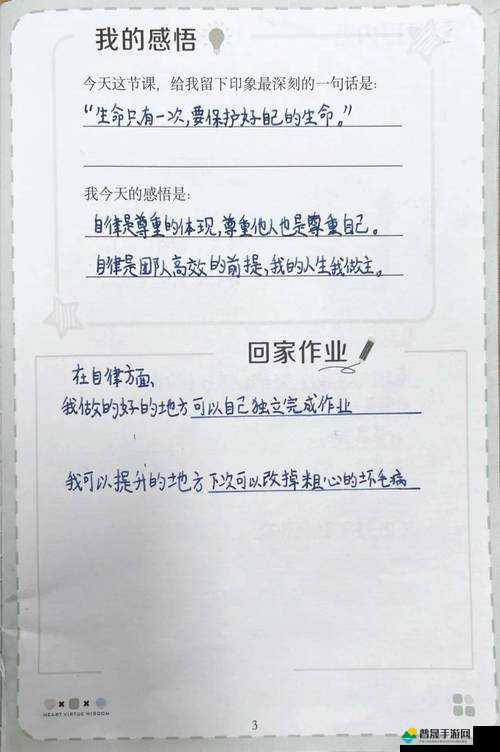 我的感悟
今天这节课，给我留下印象最深刻的一句话是：
“生命只有一次，要保护好自己的生命。”
我今天的感悟是：
自律是尊重的体现，尊重他人也是尊重自己。
自律是团队高效的前提，我的人生我做主。
回家作业
在自律方面、
我做的好的地方可以自己独立完成作业
我可以提升的地方下次可以改掉粗心的坏毛病
HEART VIRTUE WISDOM
3
普晟手游网